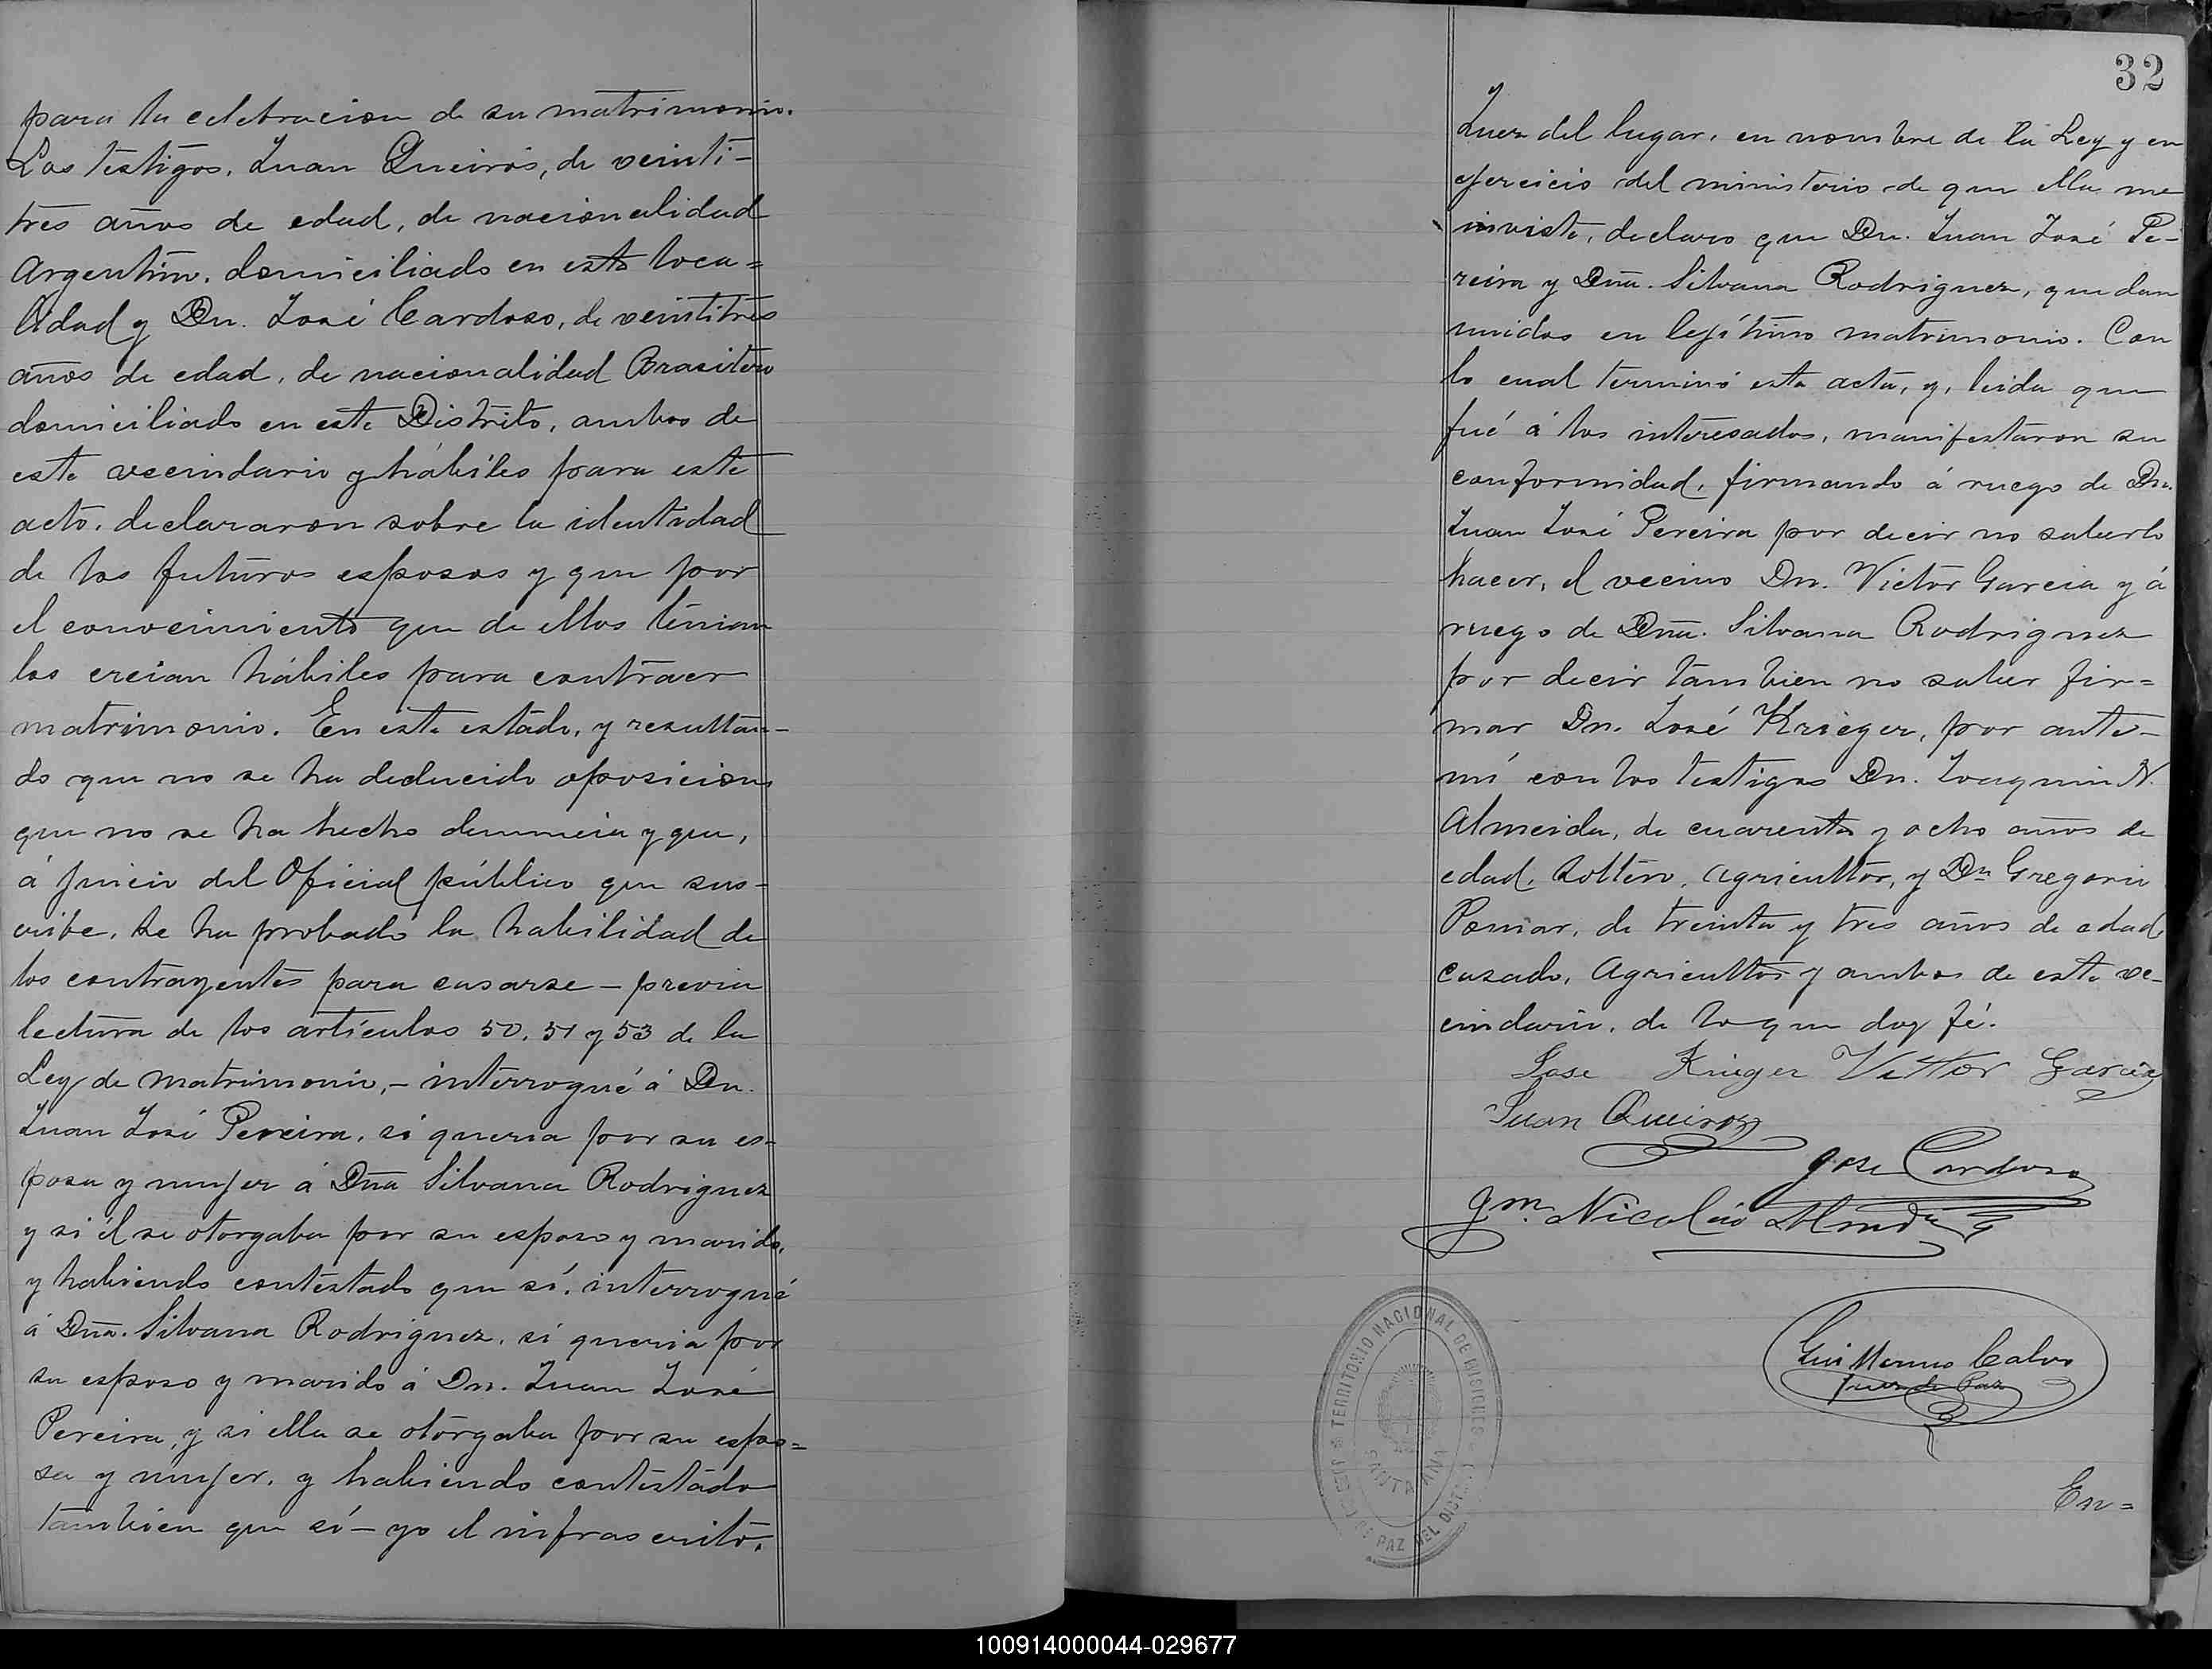 para la celebracion de su matrimonio.
Los testigos, Juan Queirós, de veinti-
trés años de edad, de nacionalidad
Argentino, domiciliado en esta loca=
lidad y Dn. José Cardoso, de veintitres
años de edad, de nacionalidad Brasilero
domiciliado en este Distrito, ambos de
este vecindario y hábiles para este
acto, declararon sobre la identidad
de los futuros esposos y que por
el conocimiento que de ellos tenian
los creian hábiles para contraer
matrimonio. En este estado, y resultan-
do que no se ha deducido oposicion,
que no se ha hecho denuncia y que,
á juicio del Oficial público que sus-
cribe, se ha probado la habilidad de
los contrayentes para casarse - previa
lectura de los artículos 50, 51 y 53 de la
Ley de matrimonio, - interrogué á Dn.
Juan José Pereira, si queria por su es-
posa y mujer á Dña Silvana Rodriguez
y si él se otorgaba por su esposo y marido,
y habiendo contestado que sí, interrogué
á Dña. Silvana Rodriguez, si queria por
su esposo y marido á Dn. Juan José
Pereira, y si ella se otorgaba por su espo=
sa y mujer, y habiendo contestado
tambien que sí - yo el infrascrito,
32
Juez del lugar, en nombre de la Ley y en
ejercicio del ministerio de que ella me
inviste, declaro que Dn. Juan José Pe-
reira y Dña. Silvana Rodriguez, quedan
unidos en lejítimo matrimonio. Con
lo cual terminó esta acta, y, leida que
fué á los interesados, manifestaron su
conformidad, firmando á ruego de Dn.
Juan José Pereira por decir no saberlo
hacer, el vecino Dn. Victor Garcia y á
ruego de Dña. Silvana Rodriguez
por decir tambien no saber fir=
mar Dn. José Krieger, por ante-
mí con los testigos Dn. Joaquin N.
Almeida, de cuarenta y ocho años de
edad, soltero, agricultor, y Dn Gregorio
Pomar, de treinta y tres años de edad,
casado, Agricultor y ambos de este ve-
cindario, de lo que doy fé.
Jose Krieger Victor Garcia
Juan Queiroz
Jose Cardoso
Jm. Nicoláo Almda
TERRITORIO NACIONAL DE MISIONES
SANTA ANA
DE PAZ DEL DIST
Guillermo Calvo
Juez de Paz
En=
100914000044-029677